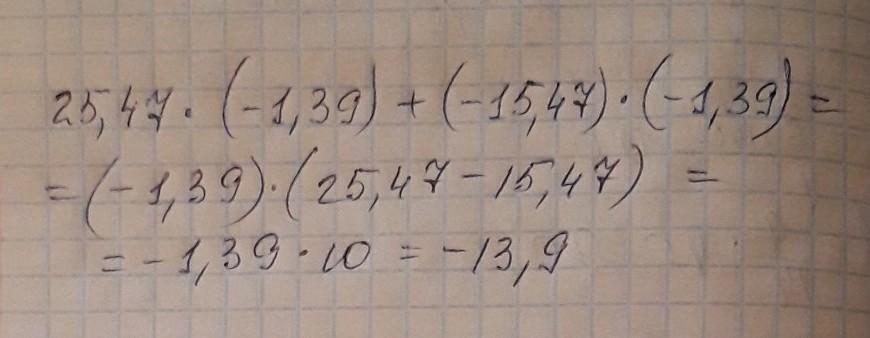 25,47 · (-1,39) + (-15,47) · (-1,39) =
= (-1,39) · (25,47 - 15,47) =
= -1,39 · 10 = -13,9